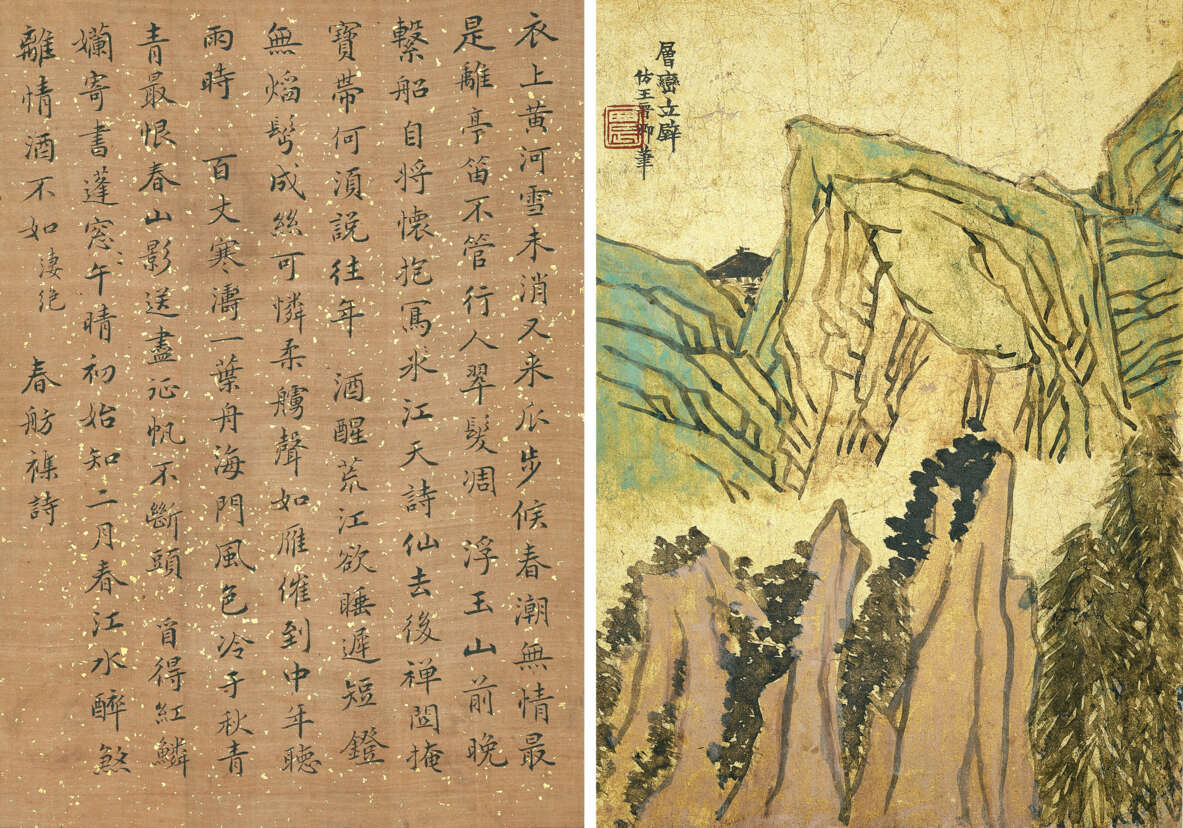 衣上黄河雪未消又来瓜步候春潮無情最
是離亭笛不管行人翠髮凋 浮玉山前晚
繫船自将懷抱寫氷江天詩仙去後禅関掩
寶帶何湏説往年 酒醒荒江欲睡遲短鐙
無焰髩成絲可憐柔艣聲如雁催到中年聽
雨時 百丈寒濤一葉舟海門風色冷于秋青
青最恨春山影送盡征帆不斷頭 肎得紅鱗
嬾寄書蓬窓午晴初始知二月春江水醉煞
離情酒不如 凄绝 春舫襍詩
層巒立壁
仿王晉卿筆